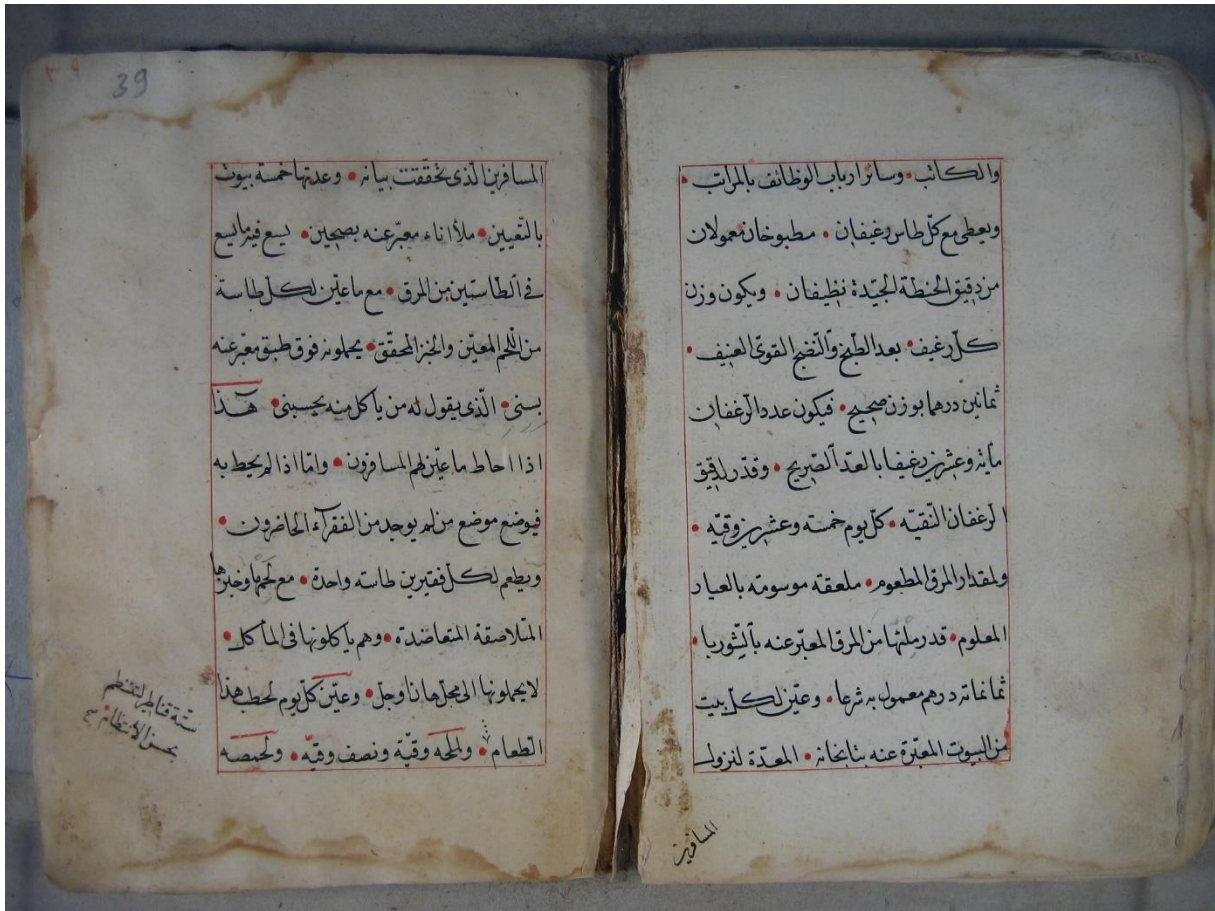 والكاتب • وسائر ارباب الوظائف بالمراتب •
ويعطى مع كل طاس رغيفان • مطبوخان معمولان
من دقيق الحنطة الجيّدة نظيفان • ويكون وزن
كلّ رغيف • بعد الطبخ والنّضج القوىّ العنيف •
ثمانين درهما بوزن صحيح • فيكون عدد الرغفان
مأية وعشرين رغيفا بالعدّ الصريح • وقدّر لدقيق
الرغفان النّقيّه • كلّ يوم خمسة وعشرين وقيّه •
ولمقدار المرق المطعوم • ملعقة موسومة بالعيار
المعلوم • قدر ملئها من المرق المعبّر عنه بالشّوربا •
ثمانمائة درهم معمول به شرعا • وعيّن لكلّ بيت
من البيوت المعبّرة عنه بتابخانه • المعدّة لنزول
المسافرين
٣٩
39
المسافرين الّذى تحقّقت بيانه • وعدتها خمسة بيوت
بالتّعيين • ملأ اناء معبّر عنه بصحين • يسع فيه ما يسع
فى الطّاستين من المرق • مع ما عيّن لكلّ طاسة
من اللّحم المعيّن والخبز المحقّق • يحملونه فوق طبق معبّر عنه
بسنى • الّذى يقول له من يأكل منه يحسبنى • هذا
اذا احاط ما عيّن لهم المسافرون • وامّا اذا لم يحط به
فيوضع موضع من لم يوجد من الفقرآء الحاضرون •
ويطعم لكلّ فقيرين طاسة واحدة • مع لحمها وخبزها
المتلاصقة المتعاضدة • وهم يأكلونها فى المأكل •
لا يحملونها الى محلّ هان اوجلّ • وعيّن كلّ يوم لحطب هذا
الطعام • ولملحه وقيّة ونصف وقيّه • ولحمصه
ستّة قناطير لتنتظم
بحسن الانتظام صح